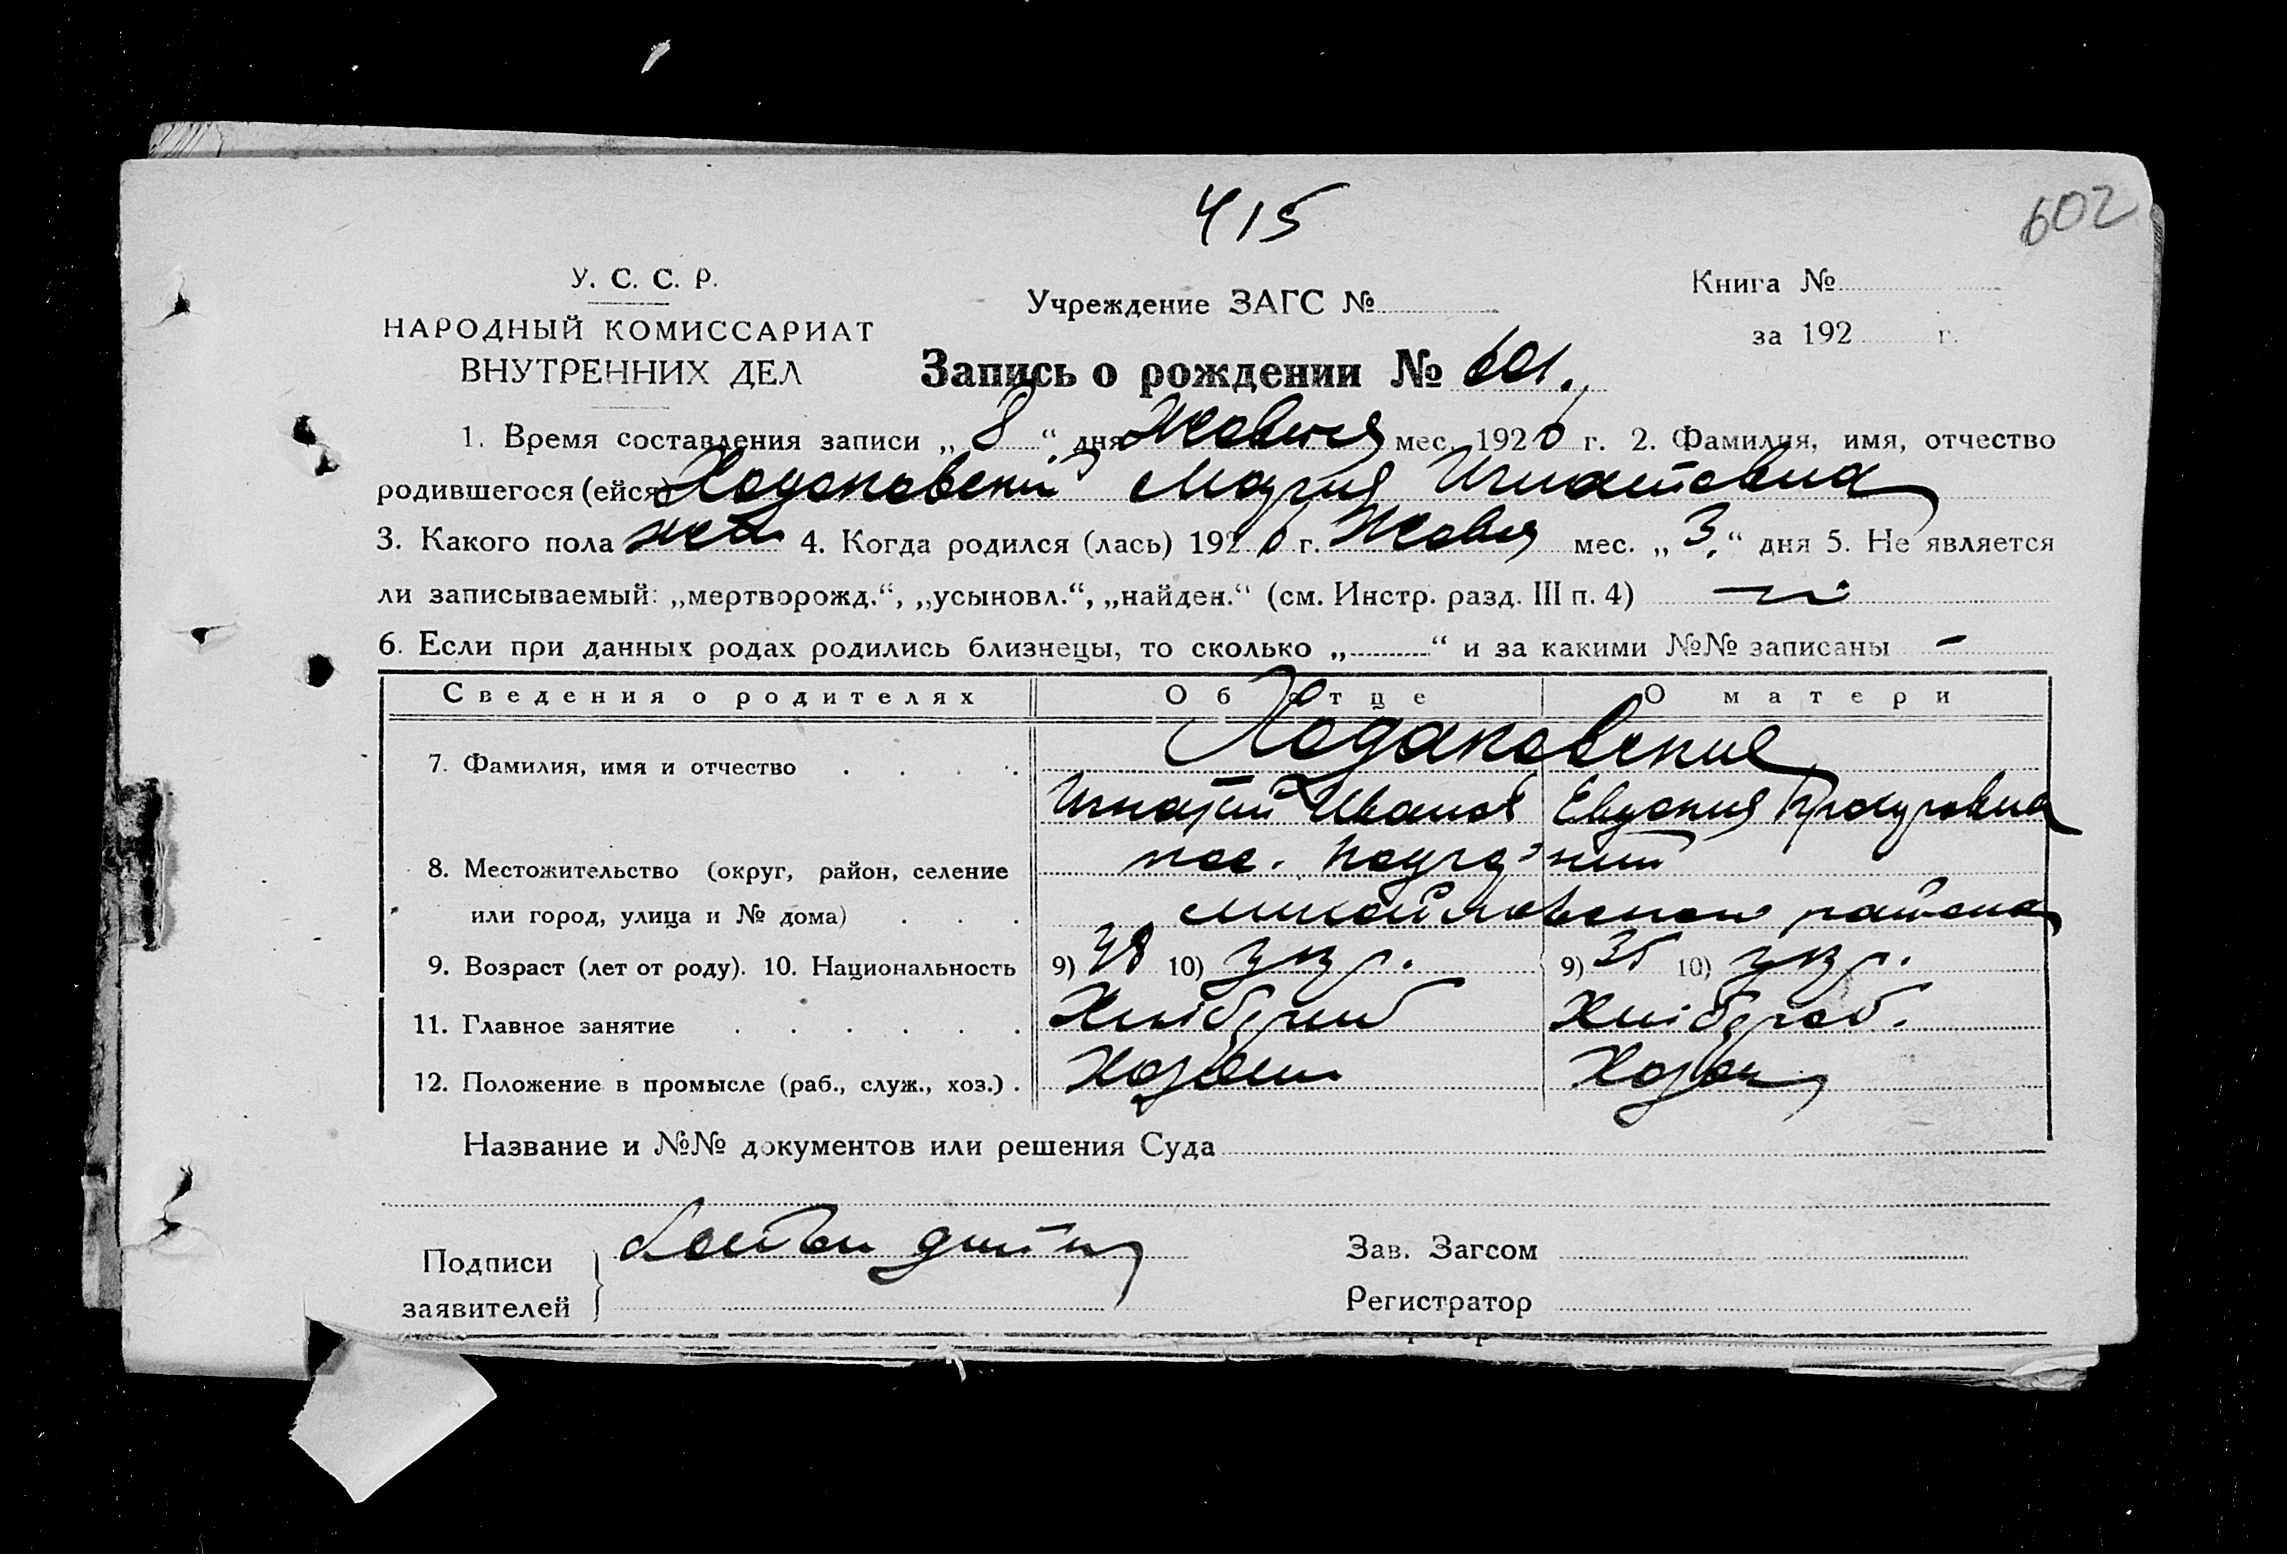 415
602
У. С. С. Р.
НАРОДНЫЙ КОМИССАРИАТ
ВНУТРЕННИХ ДЕЛ
Учреждение ЗАГС №
Книга №
за 192 г.
Запись о рождении № 601.
1. Время составления записи „ 8 “ дня Жовтня мес. 1926 г. 2. Фамилия, имя, отчество
родившегося (ейся) Ходаковский Мария Игнатовна
3. Какого пола жен 4. Когда родился (лась) 1926 г. Жовтня мес. „ 3. “ дня 5. Не является
ли записываемый: „мертворожд.“, „усыновл.“, „найден.“ (см. Инстр. разд. III п. 4)
6. Если при данных родах родились близнецы, то сколько „ “ и за какими №№ записаны -
Сведения о родителях Об отце О матери
7. Фамилия, имя и отчество Ходаковские
Игнатий Иванов Евдокия
8. Местожительство (округ, район, селение пос.
или город, улица и № дома) Михайловского района
9. Возраст (лет от роду). 10. Национальность 9) 38 10) укр. 9) 35 10) укр.
11. Главное занятие Хлібороб Хлібороб.
12. Положение в промысле (раб., служ., хоз.) . Хозяин Хозян
Название и №№ документов или решения Суда
Подписи заявителей
Зав. Загсом
Регистратор